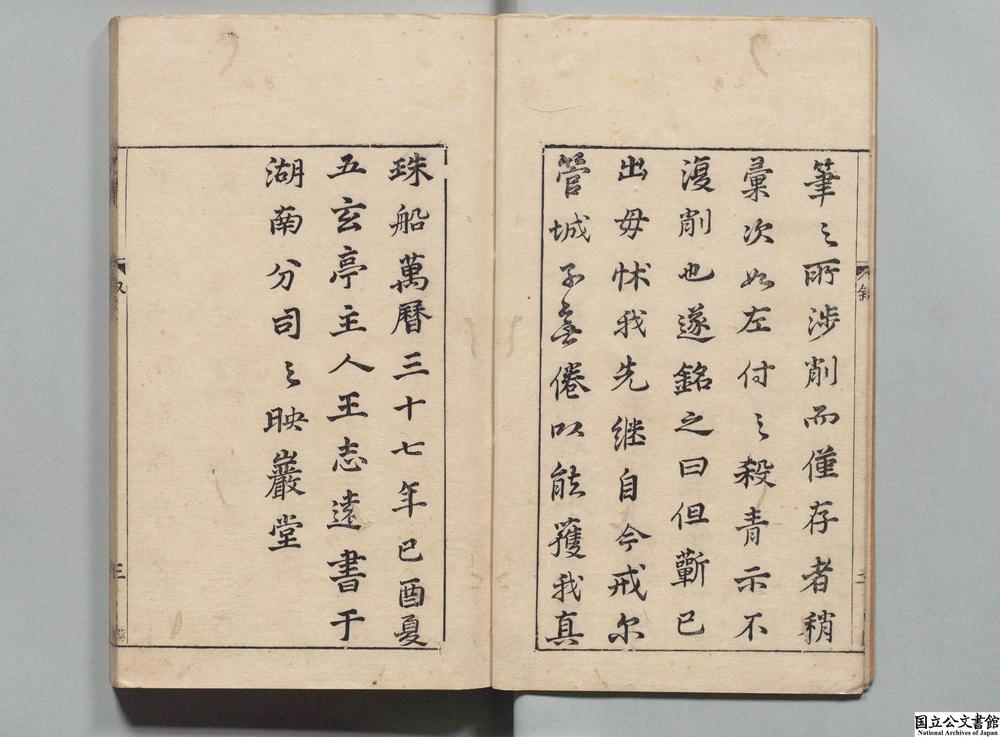 筆之所涉削而僅存者稍
彙次如左付之殺青示不
復削也遂銘之曰但蘄已
出毋怵我先继自今戒尔
管城子無倦以能獲我真
珠船萬曆三十七年己酉夏
五玄亭主人王志遠書于
湖南分司之映巖堂
叙
三
国立公文書館
National Archives of Japan